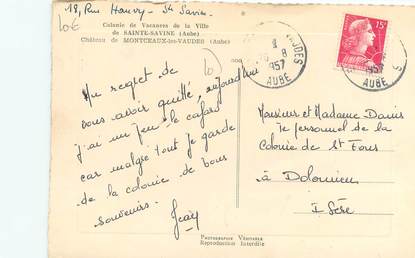 18, Rue Hauvy - Ste Savine
10€
Colonie de Vacances de la Ville
de SAINTE-SAVINE (Aube)
Château de MONTCEAUX-les-VAUDES (Aube)
10
Au regret de
vous avoir quitté, aujourd'hui
j'ai un peu le cafard
car malgré tout je garde
de la colonie de bons
souvenirs.
Jean
VAUDES
8
1957
AUBE
15F
S
1957
AUBE
Monsieur et Madame Danis
le personnel de la
Colonie de St Fons
à Dolomieu
Isère
Reproduction Interdite